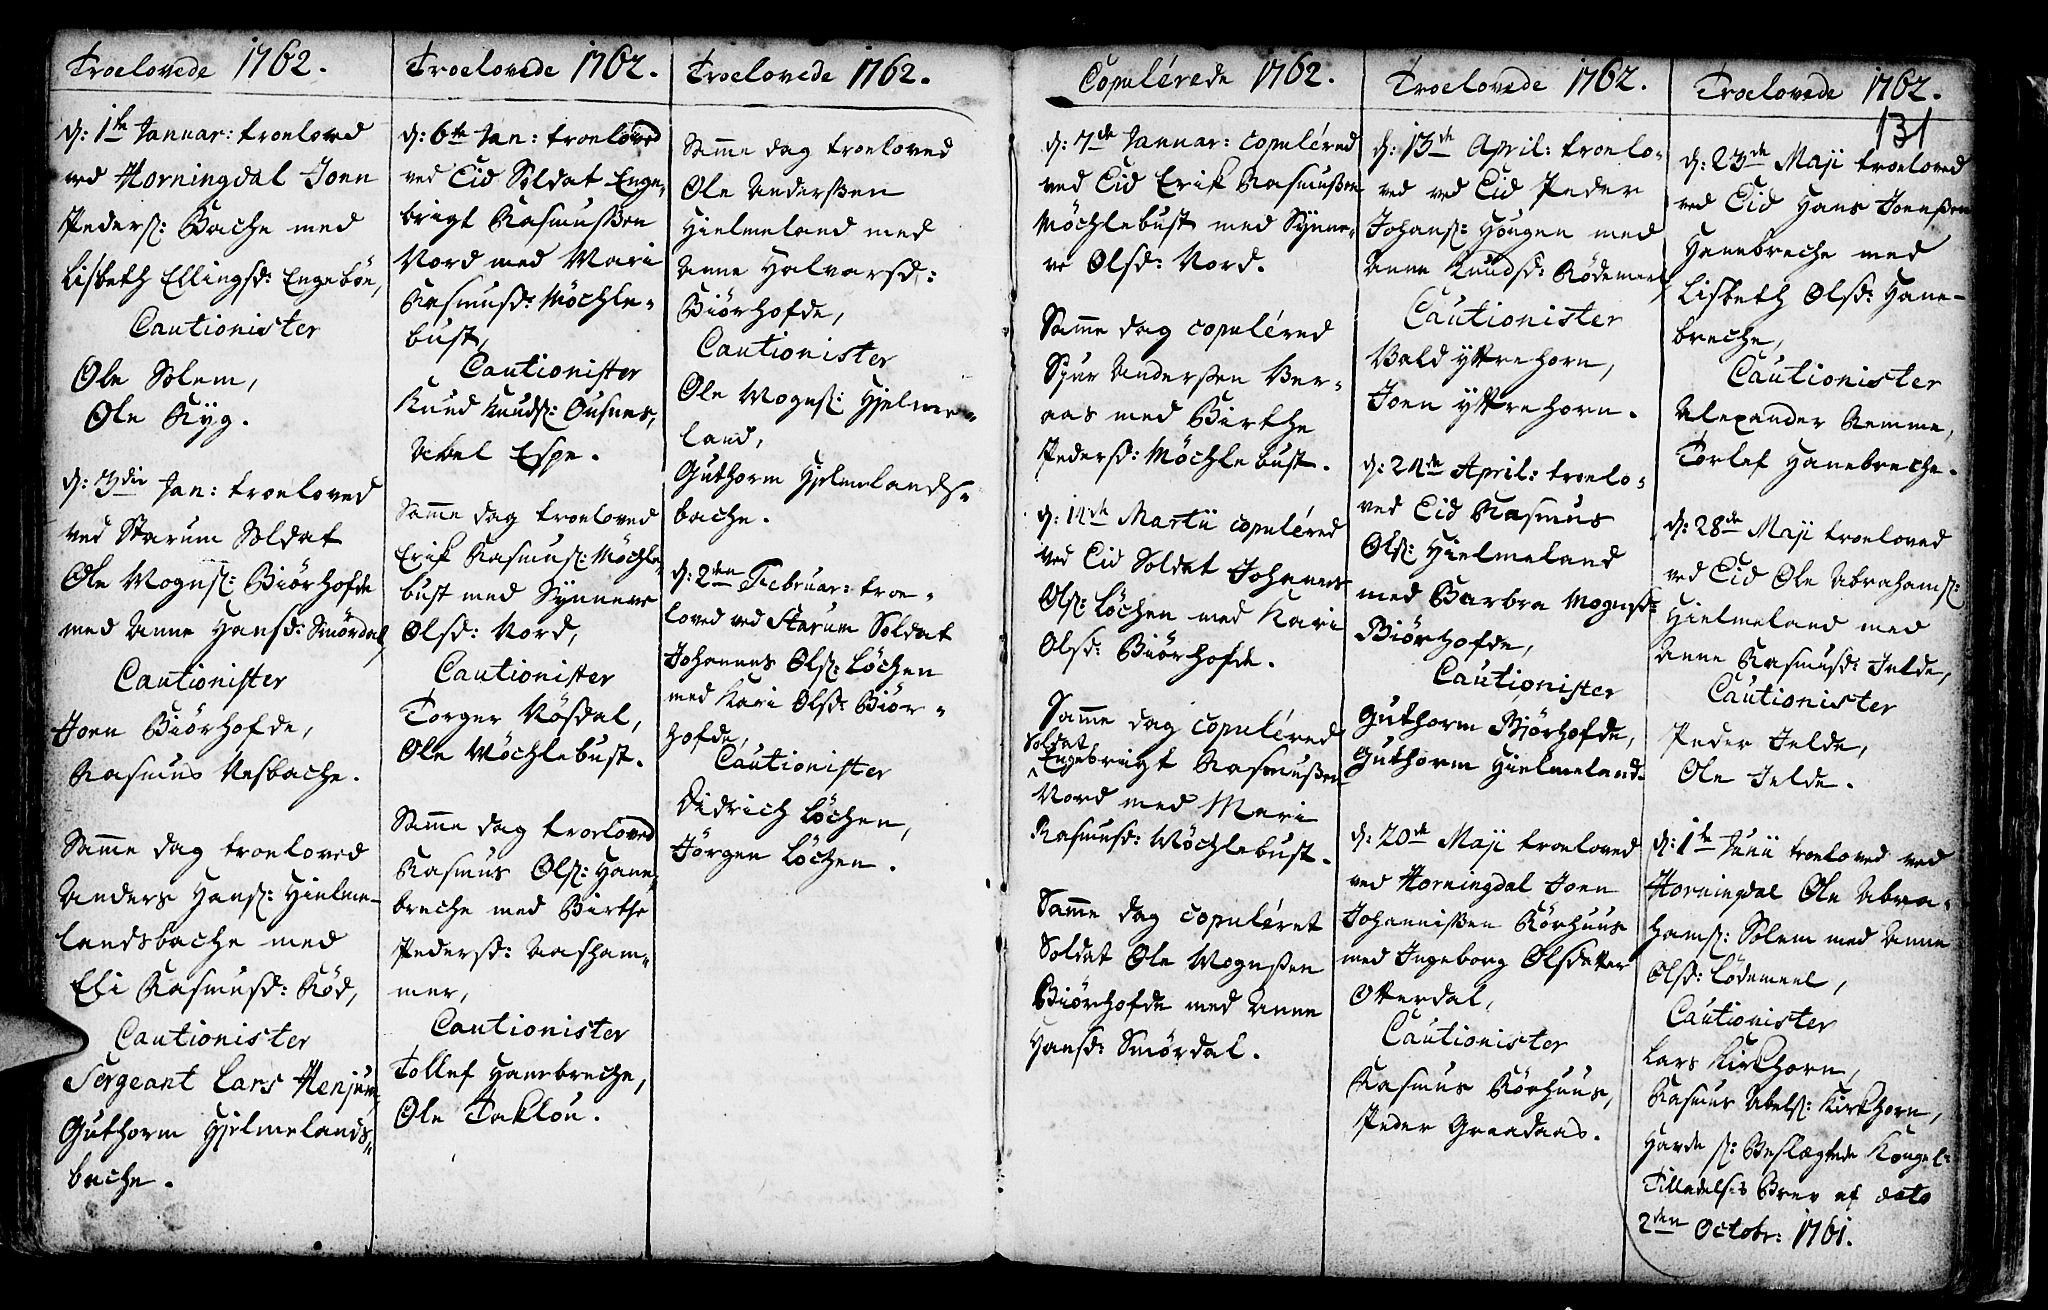 Troelovede 1762.
d: 1te Januar: troeloved
ved Horningdal Joen
Peders: Bache med
Lisbeth Ellingsd: Engeböe,
Cautionister
Ole Solem,
Ole Ryg.
d: 3die Jan: troeloved
ved Starum Soldat
Ole Mogns: Biörhofde
med Anne Hansd: Smördal,
Cautionister
Joen Biörhofde,
Rasmus Nesbache.
Samme dag troeloved
Anders Hans: Hielme-
landsbache med
Eli Rasmusd: Röd,
Cautionister
Sergeant Lars Henjum,
Guthorm Hjelmelands-
bache.
Troelovede 1762.
d: 6te Jan: troeloved
ved Eid Soldat Enge-
brigt Rasmussen
Nord med Mari
Rasmusd: Möchle-
bust,
Cautionister
Knud Knuds: Ousnes,
Abel Espe.
Samme dag troeloved
Erik Rasmus: Möchle-
bust med Synneve
Olsd: Nord,
Cautionister
Torger Nösdal,
Ole Möchlebust.
Samme dag troeloved
Rasmus Ols: Hane-
breche med Birthe
Pedersd: Aasham-
mer,
Cautionister
Tollef Hanebreche,
Ole Taklou.
Troelovede 1762.
Samme dag troeloved
Ole Anderssen
Hielmeland med
Anne Halvarsd:
Biörhofde,
Cautionister
Ole Mogns: Hjelme-
land,
Guthorm Hjelmelands-
bache.
d: 2den Februar: troe-
loved ved Starum Soldat
Johannes Ols: Löchen
med Kari Olsd: Biör-
hofde,
Cautionister
Didrich Löchen,
Jörgen Löchen.
Copulérede 1762.
d: 7de Januar: copuléred
ved Eid Erik Rasmussen
Möchlebust med Synne-
ve Olsd: Nord.
Samme dag copuléred
Siur Anderssen Ber-
aas med Birthe
Pedersd: Möchlebust.
d: 14de Martii copuléred
ved Eid Soldat Johannes
Ols: Löchen med Kari
Olsd: Biörhofde.
Samme dag copuléred
Soldat
Engebrigt Rasmussen
Nord med Mari
Rasmusd: Möchlebust.
Samme dag copuléret
Soldat Ole Mognssen
Biörhofde med Anne
Hansd: Smördal.
Troelovede 1762.
d: 13de April: troelo-
ved ved Eid Peder
Johans: Hougen med
Anne Knudsd: Rödemeel,
Cautionister
Bald yttrehorn,
Joen yttrehorn.
d: 24de April: troelo-
ved Eid Rasmus
Ols: Hielmeland
med Barbra Mognsd:
Biörhofde,
Cautionister
Guthorm Biörhofde,
Guthorm Hielmeland.
d: 20de Maji troeloved
ved Horningdal Joen
Johannissen Rörhuus
med Ingeborg Olsdatter
Otterdal,
Cautionister
Rasmus Rörhuus,
Peder Graadaas.
Troelovede 1762.
131
d: 23de Maji troeloved
ved Eid Hans Joenssen
Hanebreche med
Lisbeth Olsd: Hane-
breche,
Cautionister
Alexander Remme,
Torlef Hanebreche.
d: 28de Maji troeloved
ved Eid Ole Abrahams:
Hielmeland med
Anne Rasmusd: Jelde,
Cautionister
Peder Jelde,
Ole Jelde.
d: 1te Junii troeloved ved
Horningdal Ole Abra-
hams: Solem med Anne
Olsd: Lödemeel,
Cautionister
Lars Kirkhorn,
Rasmus Abels: Kirkhorn,
Havde s: Beslægtede Kongel:
Tilladelses Brev af dato
2den Octobr: 1761.